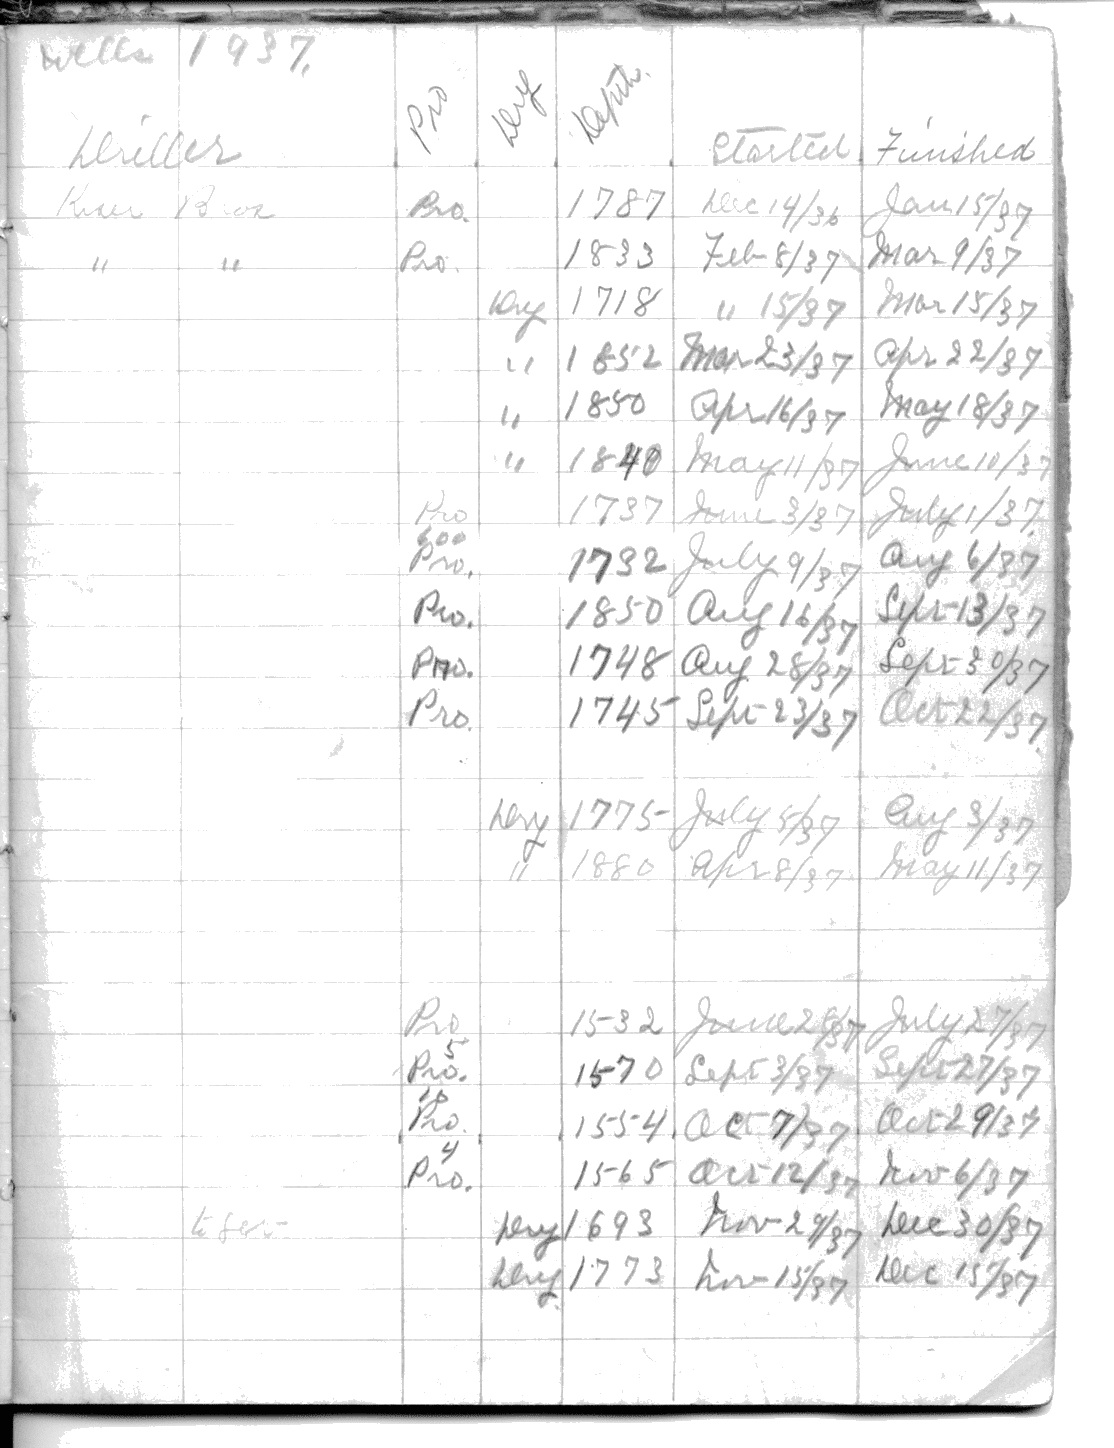 Wells 1937.
Driller Pro Dry Depth. Started Finished
Bros Pro. 1787 Dec 14/36 Jan 15/37
" " Pro. 1833 Feb 8/37 Mar 9/37
Dry 1718 " 15/37 Mar 15/37
" 1852 Mar 23/37 Apr 22/37
" 1850 Apr 16/37 May 18/37
" 1840 May 11/37 June 10/37
Pro 1737 June 3/37 July 1/37.
600
Pro. 1732 July 9/37 Aug 6/37
Pro. 1850 Aug 16/37 Sept 13/37
Pro. 1748 Aug 28/37 Sept 30/37
Pro. 1745 Sept 23/37 Oct 22/37.
Dry 1775 July 5/37 Aug 3/37
" 1880 Apr 8/37 May 11/37
Pro 1532 June 28/37 July 27/37
5
Pro. 1570 Sept 3/37 Sept 27/37
10
Pro. 1554 Oct 7/37 Oct 29/37
4
Pro. 1565 Oct 12/37 Nov 6/37
Dry 1693 Nov 29/37 Dec 30/37
Dry 1773 Nov 15/37 Dec 15/37